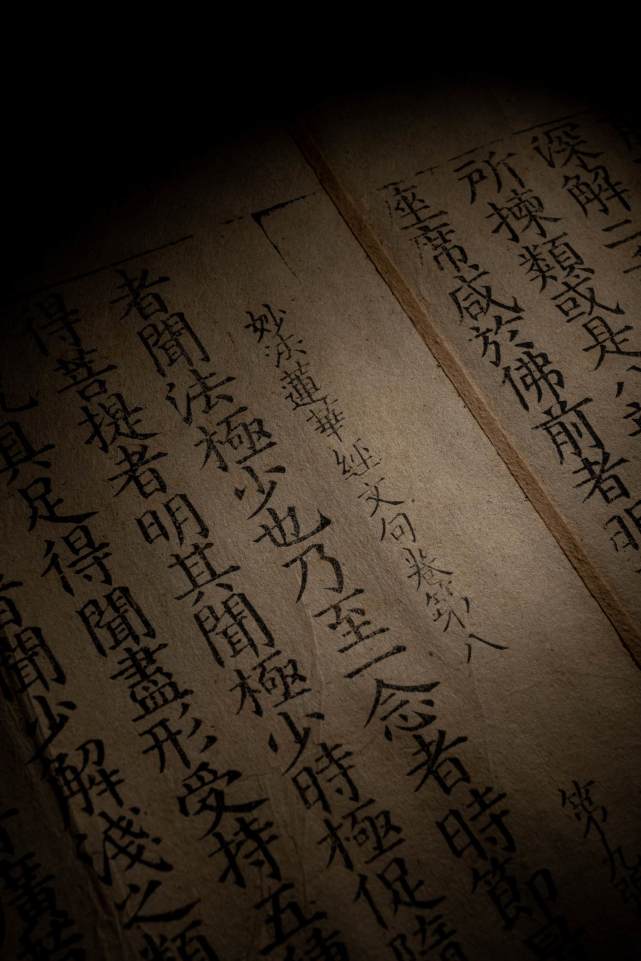 深解
所揀類或是八
座席咸於佛前者明
妙法蓮華經文句卷第八
第九張
者聞法極少也乃至一念者時節
得菩提者明其聞極少時極促隨
具足得聞盡形受持五種
者聞少解淺之類
廣